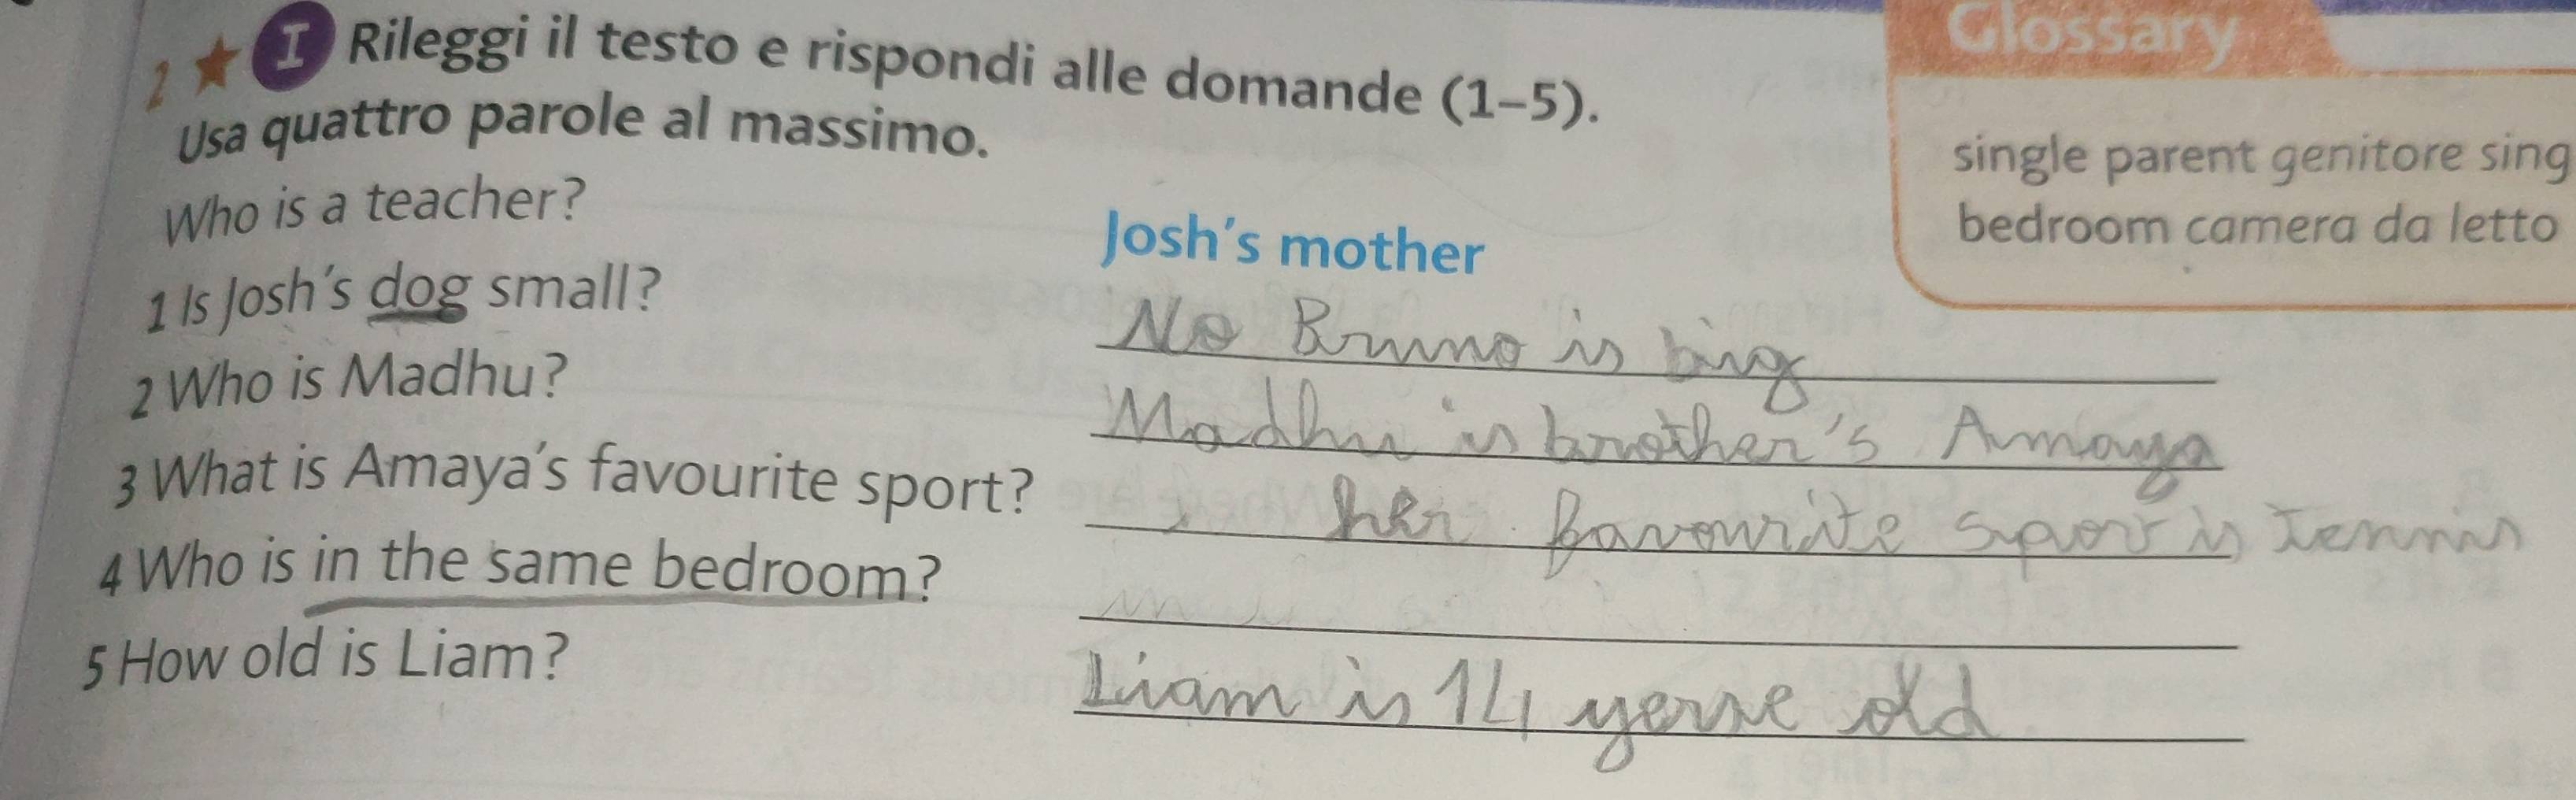 Glossary
2 ★ I Rileggi il testo e rispondi alle domande (1–5).
Usa quattro parole al massimo.
single parent genitore sing
bedroom camera da letto
Who is a teacher?
Josh's mother
1 Is Josh's dog small?
No Bruno is bing
2 Who is Madhu?
Madhu is brother's Amaya
3 What is Amaya's favourite sport?
her favourite sport is tennis
4 Who is in the same bedroom?
5 How old is Liam?
Liam is 14 yerse old